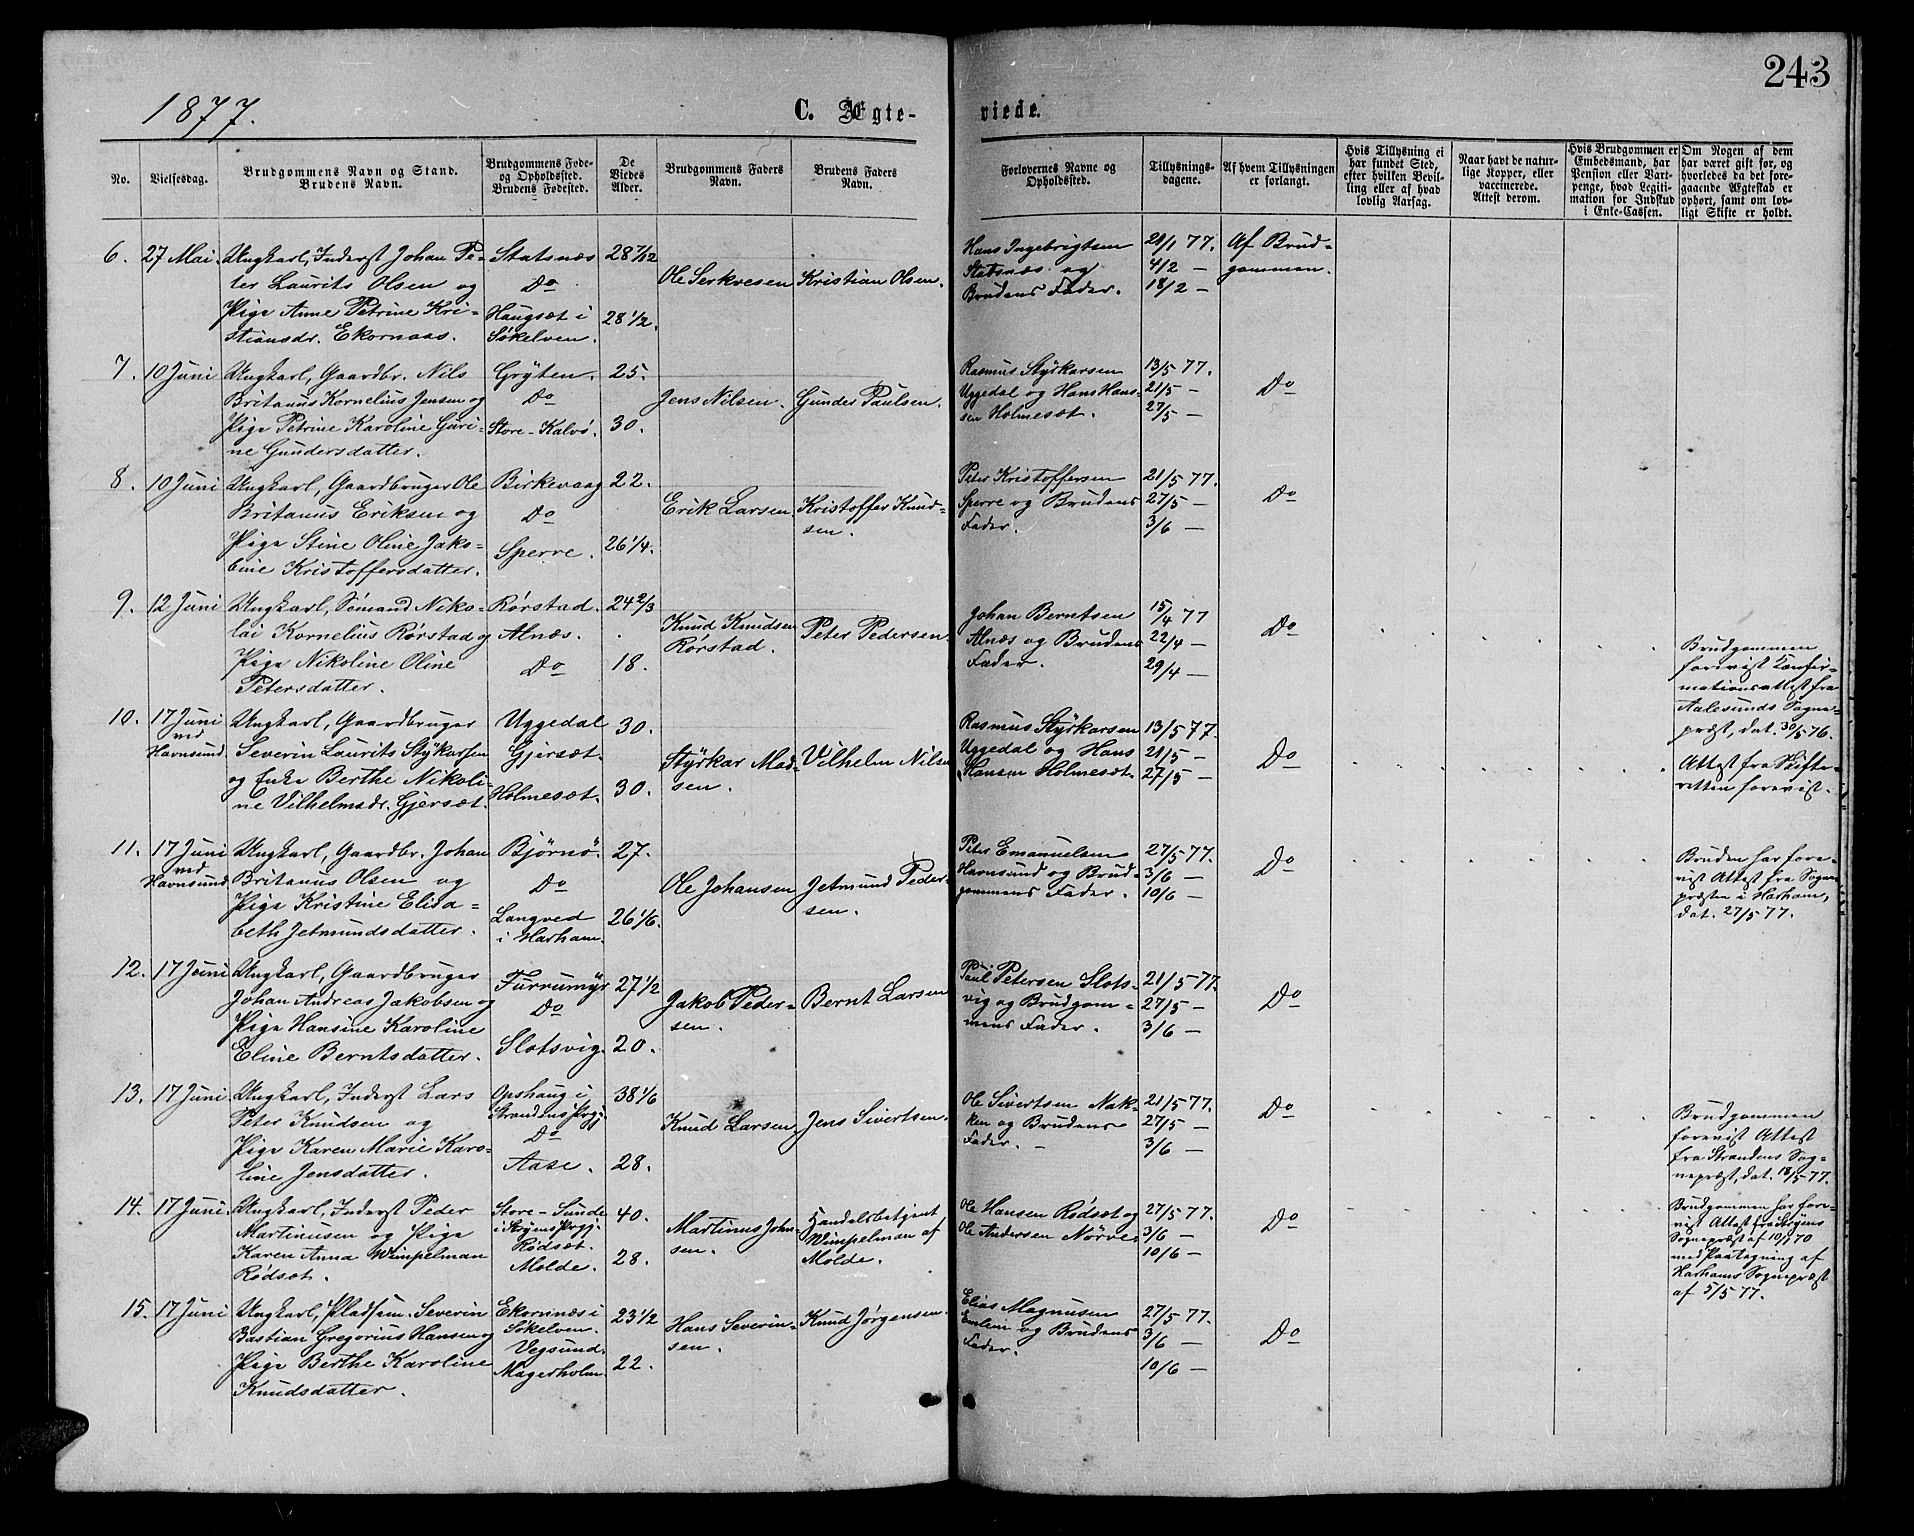 243
1877.
C. Ægte-
viede.
No.
Vielsesdag.
Brudgommens Navn og Stand.
Brudens Navn.
Brudgommens Føde-
og Opholdssted.
Brudens Fødested.
De
Viedes
Alder.
Brudgommens Faders
Navn.
Brudens Faders
Navn.
Forlovernes Navne og
Opholdssted.
Tillysnings-
dagene.
Af hvem Tillysningen
er forlangt.
Hvis Tillysning ei
har fundet Sted,
efter hvilken Bevil-
ling eller af hvad
lovlig Aarsag.
Naar havt de natur-
lige Kopper, eller
vaccinerede.
Attest derom.
Hvis Brudgommen er
Embedsmand, har
Pension eller Vart-
penge, hvad Legiti-
mation for Indskud
i Enke-Cassen.
Om Nogen af dem
har været gift før, og
hvorledes da det fore-
gaaende Ægteskab er
ophørt, samt om lov-
ligt Skifte er holdt.
6. 27 Mai. Ungkarl, Inderst Johan Pe-
ter Laurits Olsen og
Pige Anne Petrine Kri-
stiansdr. Ekornaas.
Statsnæs
Do
Haugsæt i
Søkelven.
28 7/12
28 1/2.
Ole Serkvesen
Kristian Olsen.
Hans Ingebrigtsen
Statsnæs og
Brudens Fader.
28/1 77.
4/2 —
18/2 —
Af Brud-
gommen.
7. 10 Juni Ungkarl, Gaardbr. Nils
Britanus Kornelius Jensen og
Pige Petrine Karoline Guri-
ne Gundersdatter.
Gryten.
Do
Store-Kalvø.
25.
30.
Jens Nilsen.
Gunder Paulsen.
Rasmus Styrkarsen
Uggedal og Hans Han-
sen Holmesæt.
13/5 77.
21/5 —
27/5 —
Do
8. 10 Juni Ungkarl, Gaardbruger Ole
Britanus Eriksen og
Pige Stine Oline Jako-
bine Kristoffersdatter.
Birkevaag
Do
Sperre.
22.
26 1/4.
Erik Larsen
Kristoffer Knud-
sen.
Peter Kristoffersen
Sperre og Brudens
Fader.
21/5 77.
27/5 —
3/6 —
Do
9. 12 Juni Ungkarl, Sømand Niko-
lai Kornelius Rørstad og
Pige Nikoline Oline
Petersdatter.
Rørstad.
Alnæs.
Do
24 2/3
18.
Knud Knudsen
Rørstad.
Peter Pedersen.
Johan Berntsen
Alnæs og Brudens
Fader.
15/4 77
22/4 —
29/4 —
Do
Brudgommen
forevist Konfir-
mationsattest fra
Aalesunds Sogne-
præst, dat. 30/5 76.
10. 17 Juni
ved
Havnsund.
Ungkarl, Gaardbruger
Severin Laurits Stykarsen
og Enke Berthe Nikoli-
ne Vilhelmsdr. Gjersæt.
Uggedal
Gjersæt.
Holmesæt.
30.
30.
Styrkar Mad-
sen.
Vilhelm Nilsen
Rasmus Styrkarsen
Uggedal og Hans
Hansen Holmesæt.
13/5 77.
21/5 —
27/5 —
Do
Attest fra Skifte-
retten forevist.
11. 17 Juni
ved
Havnsund.
Ungkarl, Gaardbr. Johan
Britanus Olsen og
Pige Kristine Elisa-
beth Jetmundsdatter.
Bjørnø.
Do
Longved
i Harham.
27.
26 1/6.
Ole Johansen
Jetmund Peder-
sen.
Peter Emanuelsen
Havnsund og Brud-
gommens Fader.
27/5 77.
3/6 —
10/6 —
Do
Bruden har fore-
vist Attest fra Sogne-
præsten i Harham,
dat. 27/5 77.
12. 17 Juni Ungkarl, Gaardbruger
Johan Andreas Jakobsen og
Pige Hansine Karoline
Eline Berntsdatter.
Furrumyr
Do
Slotsvig.
27 1/2
20.
Jakob Peder-
sen.
Bernt Larsen
Paul Petersen Slots-
vig og Brudgom-
mens Fader.
21/5 77.
27/5 —
3/6 —
Do
13. 17 Juni Ungkarl, Inderst Lars
Peter Knudsen og
Pige Karen Marie Karo-
line Jensdatter.
Opshaug i
Strandens Prgj.
Do
Aase.
38 1/6
28.
Knud Larsen
Jens Sivertsen.
Ole Sivertsen Nak-
ken og Brudens
Fader.
21/5 77.
27/5 —
3/6 —
Do
Brudgommen
forevist Attest
fra Strandens Sog-
nepræst, dat. 18/5 77.
14. 17 Juni. Ungkarl, Inderst Peder
Martinusen og Pige
Karen Anna Wimpelman
Rødsæt.
Store-Sunde
i Stryns Prgj.
Rødsæt.
Molde.
40.
28.
Martinus John-
sen.
Handelsbetjent
Wimpelman af
Molde.
Ole Hansen Rødsæt og
Ole Andersen Nørve.
27/5 77.
3/6 —
10/6 —
Do
Brudgommen har fore-
vist Attest fra Stryns
Sognepræst af 10/1 70
med Paategning af
Harhams Sognepræst
af 5/5 77.
15. 17 Juni Ungkarl, Pladsm. Severin
Bastian Gregorius Hansen og
Pige Berthe Karoline
Knudsdatter.
Ekornnæs i
Søkelven.
Vegsund.
Magerholm.
23 1/2
22.
Hans Severin-
sen.
Knud Jørgensen.
Elias Magnusen
Emlem og Brudens
Fader.
27/5 77.
3/6 —
10/6 —
Do